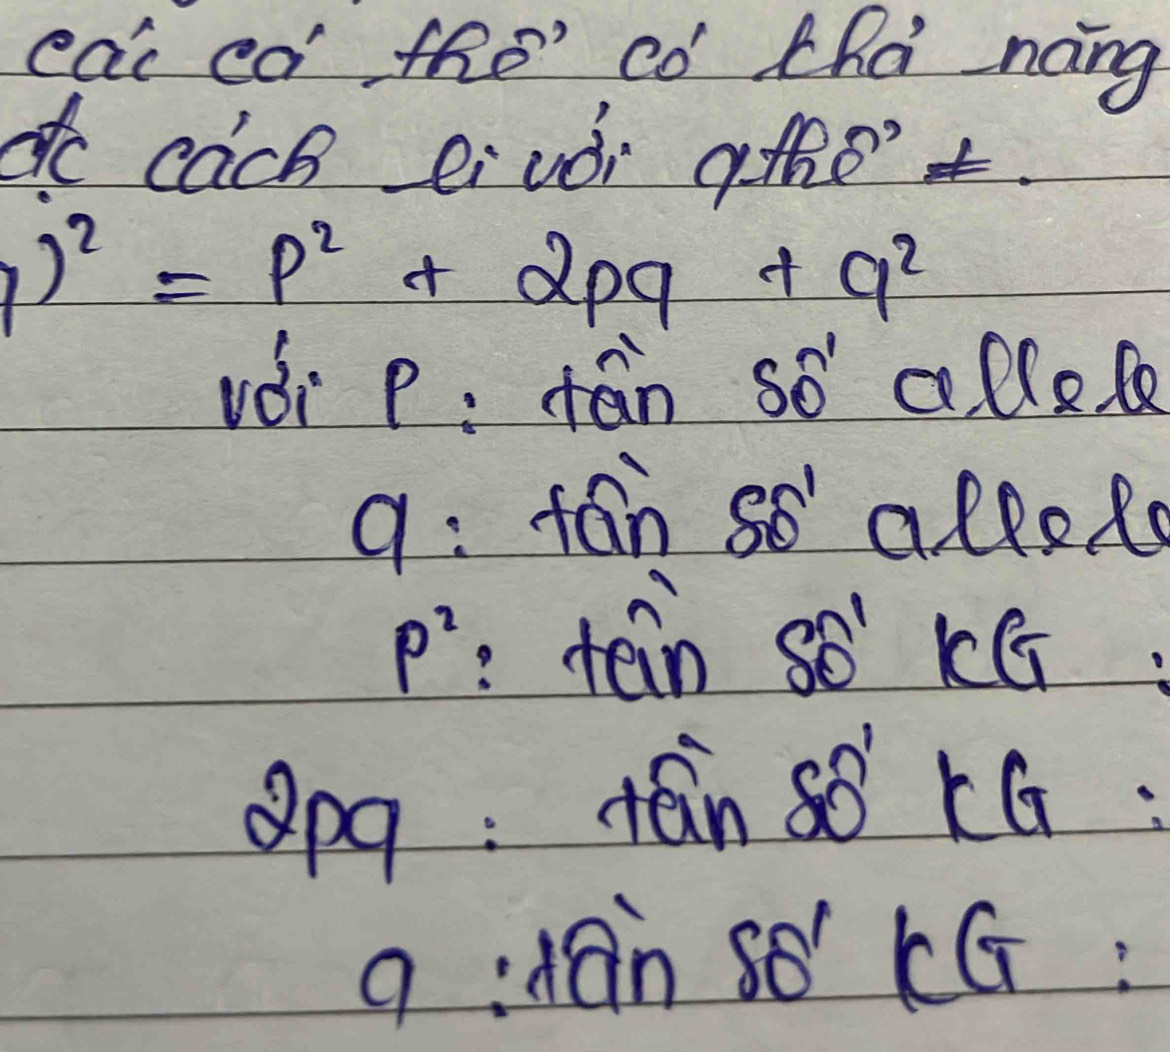 các cá thể có khả năng
đc cách li với qthể ≠.
)² = p² + 2pq + q²
với P : tần số allele
q : tần số allele
p² : tần số KG :
2pq : tần số KG :
q : tần số KG :